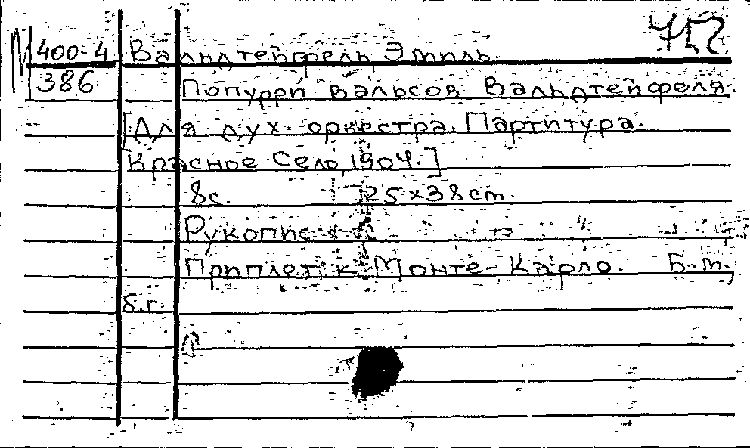 М 400-4 Вальдтейфель, Эмиль.
386 Попурри вальсов Вальдтейфеля.
[Для дух. оркестра. Партитура.
Красное Село, 1904.]
8с. 25×38cm.
Рукопись
Приплет к Монте-Карло. Б.м.,
б.г.